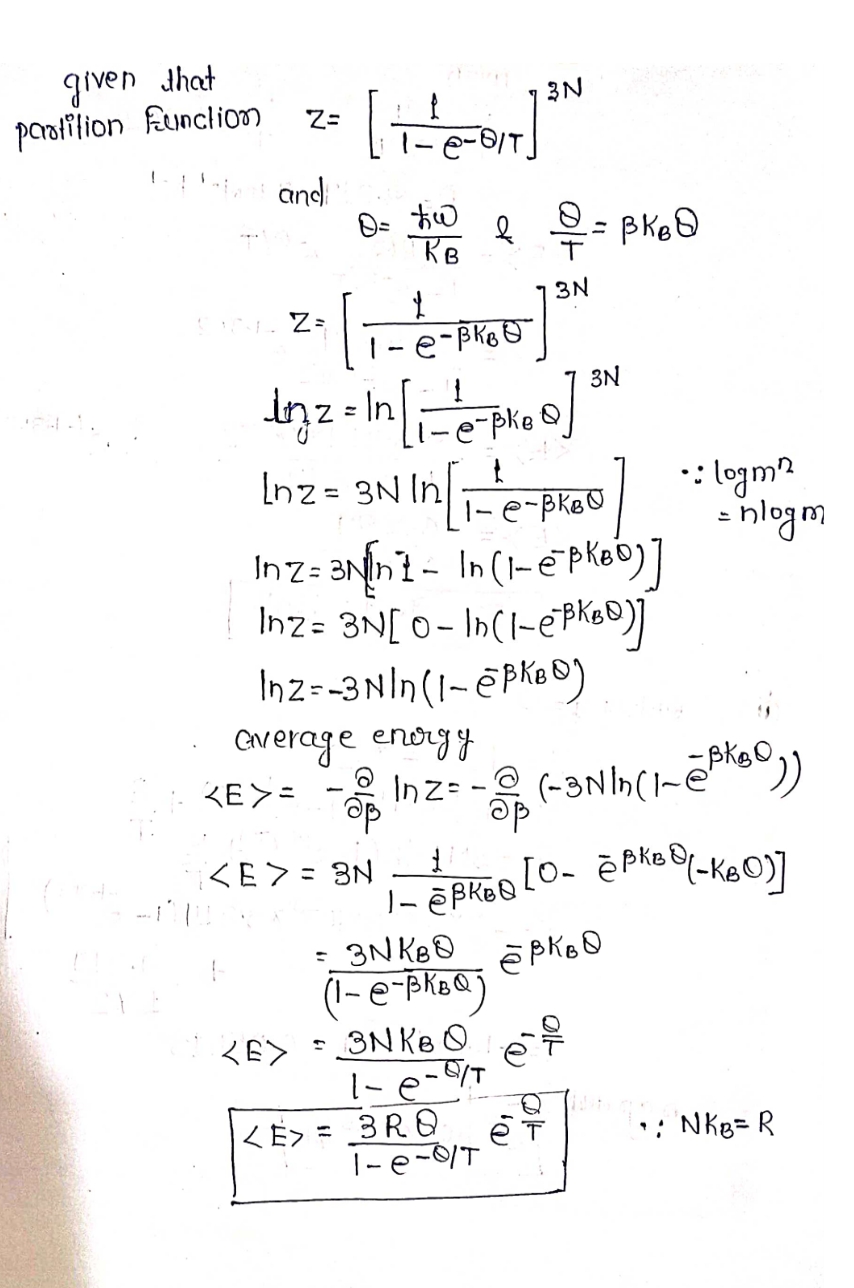 given that
partition Function Z= [1/(1-e^-θ/T)]^3N
and
θ= ħω/KB & θ/T = βKBθ
Z= [1/(1-e^-βKBθ)]^3N
ln z = ln[1/(1-e^-βKBθ)]^3N
lnz = 3N ln[1/(1-e^-βKBθ)] ∵ logm^n
= nlogm
lnZ= 3N[ln1 - ln(1-e^-βKBθ)]
lnz= 3N[0-ln(1-e^-βKBθ)]
lnz=-3Nln(1-e^-βKBθ)
average energy
<E>= -∂/∂β lnz= -∂/∂β (-3Nln(1-e^-βKBθ))
<E> = 3N 1/(1-e^-βKBθ) [0- e^-βKBθ(-KBθ)]
= 3NKBθ/(1-e^-βKBθ) e^-βKBθ
<E> = 3NKBθ/(1-e^-θ/T) e^-θ/T
<E> = 3Rθ/(1-e^-θ/T) e^-θ/T ∵ NKB=R